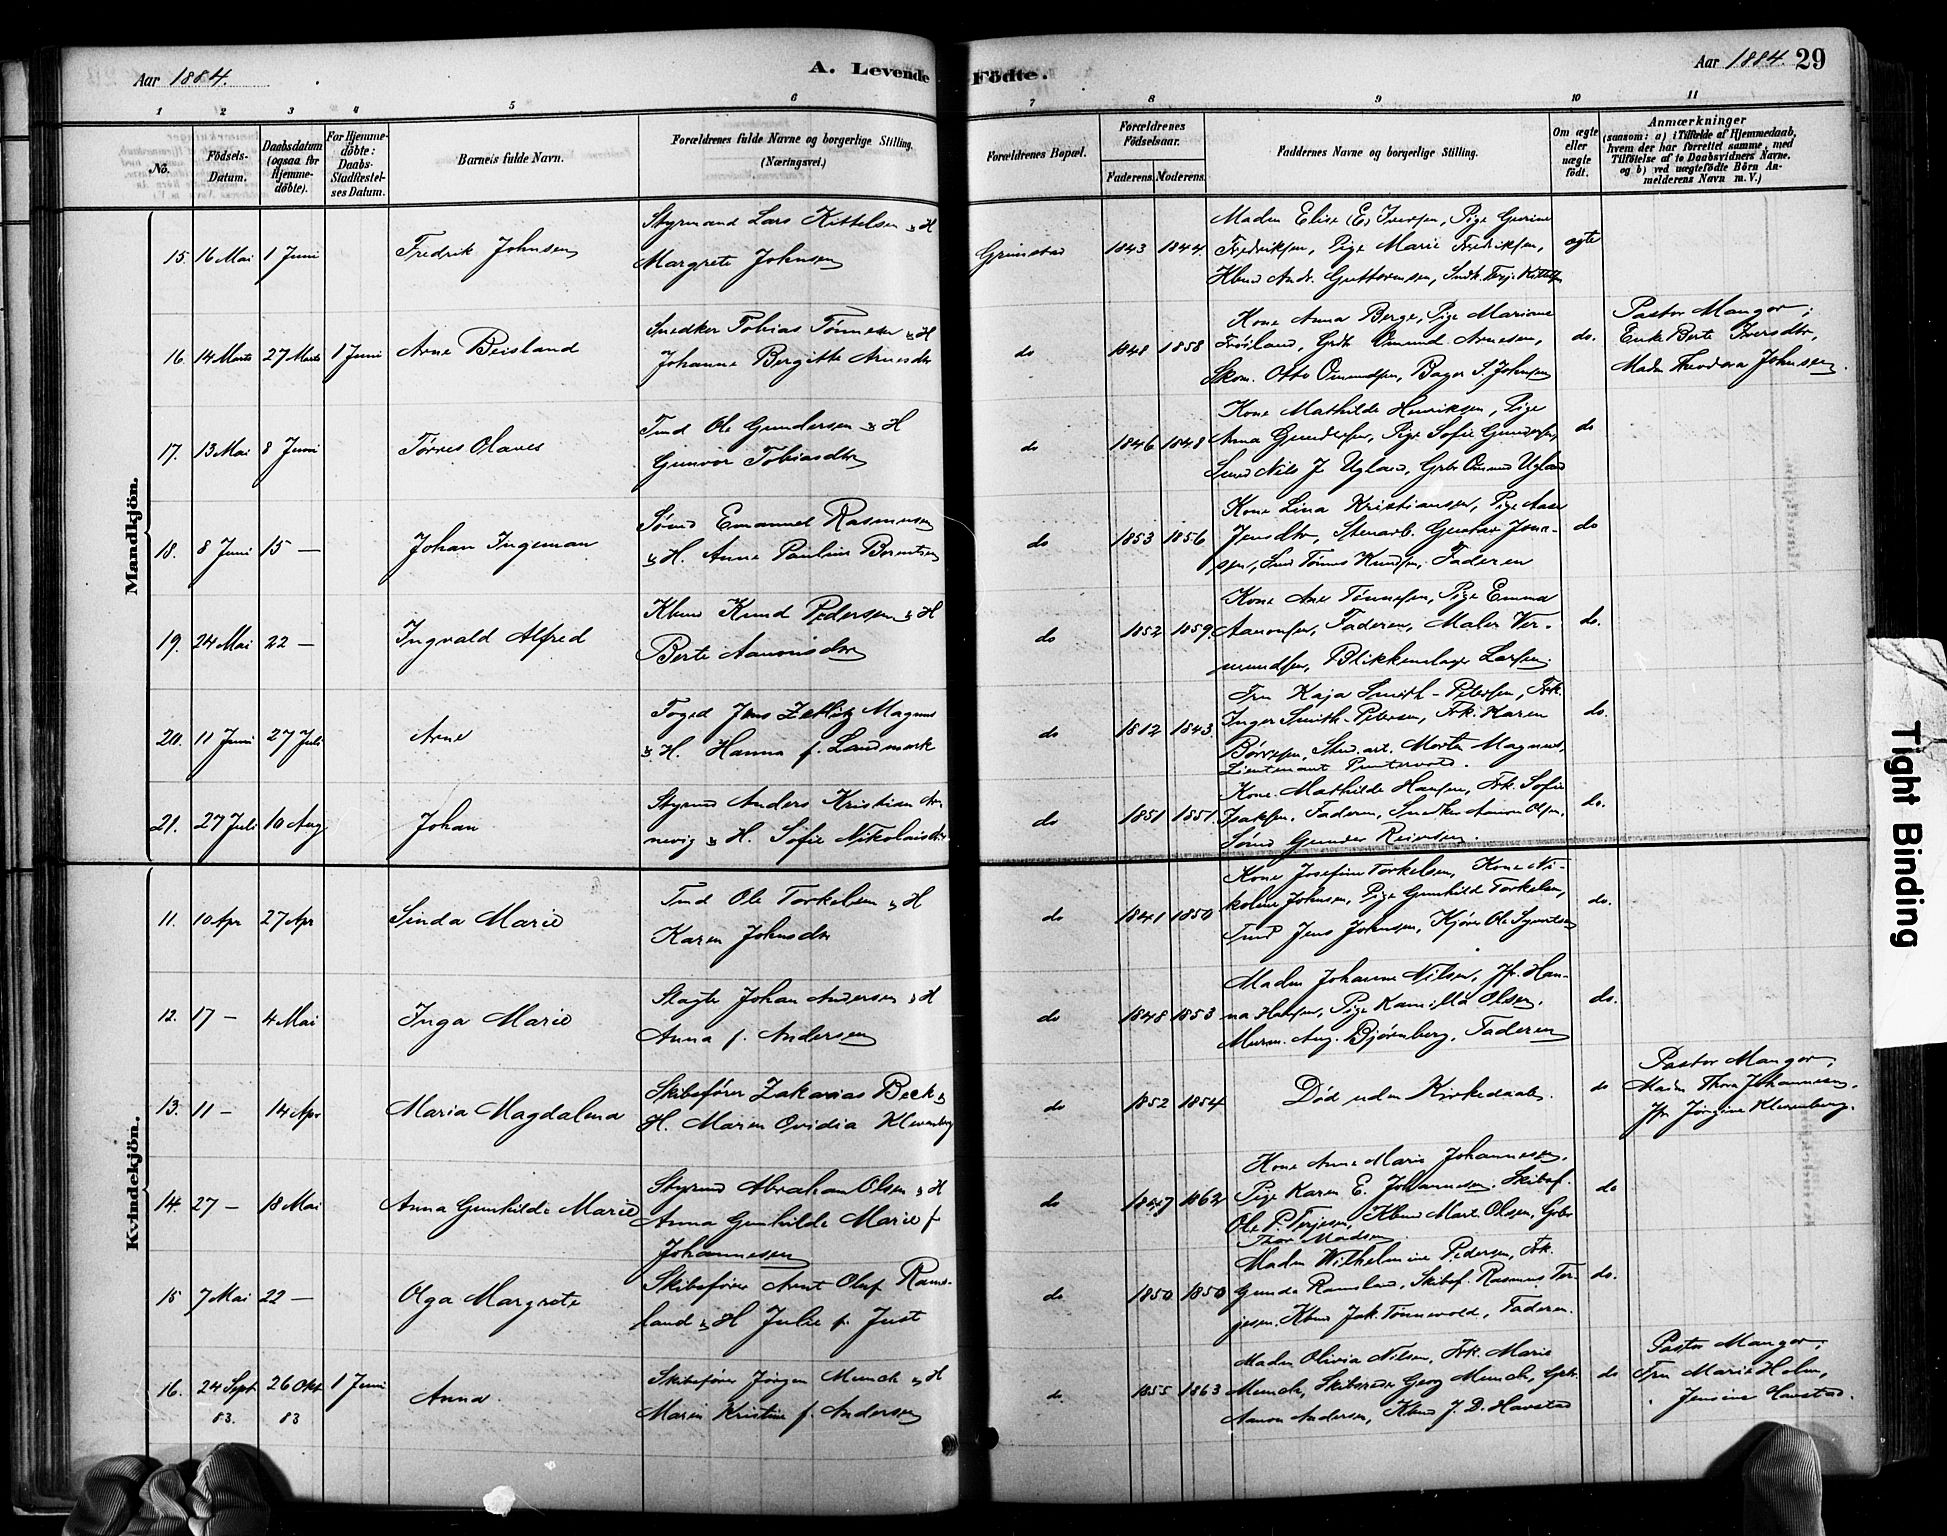 Aar 1884.
A. Levende Födte.
Aar 1884. 29
1 2 3 4 5 6 7 8 9 10 11
No.
Födsels-Datum.
Daabsdatum (ogsaa for Hjemme-døbte).
For Hjemme-döbte: Daabs-Stadfæstel-ses Datum.
Barnets fulde Navn.
Forældrenes fulde Navne og borgerlige Stilling. (Næringsvei.)
Forældrenes Bopæl.
Forældrenes Födselsaar.
Faderens. Moderens.
Faddernes Navne og borgerlige Stilling.
Om ægte eller uægte født.
Anmærkninger
(saasom: a) i Tilfælde af Hjemmedaab, hvem der har forrettet samme, med Tilföielse af to Daabsvidners Navne. og b) ved uægtefödte Börn An-melderens Navn m. V.)
Mandkjön.
15. 16 Mai 1 Juni Fredrik Johnsen
Styrmand Lars Kittelsen & H
Margrete Johnsen
Grimstad 1843 1844.
Madm Elise E. Iversen, Pige Gurine
Fredriksen, Pige Marie Fredriksen,
Kbmd Andr. Guttormsen, Snedk. Terje Kittelsen
ægte
16. 14 Marts 27 Marts 1 Juni Arne Beisland
Snedker Tobias Tønnesen & H
Johanne Bergitte Arnesdtr
do 1848 1858
Kone Anna Berge, Pige Mariane
Frøiland, Grdb. Omund Arnesen,
Skom. Otto Omundsen, Bager S. Johnsen
do.
Pastor Mangor;
Enke Berte Iversdtr,
Madm Theodora Johnsen.
17. 13 Mai 8 Juni Tørres Olaves
Tmd Ole Gundersen & H
Gunvor Tobiasdtr
do 1846 1848
Kone Mathilde Henriksen, Pige
Anna Gundersen, Pige Sofie Gundersen,
Smed Nils J. Ugland, Grbr Omund Ugland
do
18. 8 Juni 15 — Johan Ingeman
Sømd Emanuel Rasmussen
& H. Anne Pauline Berntsen
do 1853 1856
Kone Lina Kristiansen, Pige Aase
Jensdtr, Stenarb. Gunstav Jon-
sen, Smd Tønnes Knudsen, Faderen
do
19. 24 Mai 22 — Ingvald Alfred
Kbmd Knud Pedersen & H
Berte Aanonsdtr
do 1852 1859.
Kone Ane Tønnesen, Pige Emma
Aanonsen, Faderen, Maler Ver-
mundsen, Blikkenslager Larsen.
do.
20. 11 Juni 27 Juli Arne
Foged Jens Zetlitz Magnus
& H. Hanna f. Landmark
do 1812 1843.
Fru Kaja Smith-Petersen, Frk.
Inger Smith-Petersen, Frk. Karen
Børresen, Stud. art. Morten Magnus,
Lieutenant Puntervold.
do.
21. 27 Juli 10 Aug Johan
Styrmd Anders Kristian Ar-
nevig & H. Sofie Nikolaisdtr
do 1851 1851.
Kone Mathilde Hansen, Frk. Sofie
Isaksen. Faderen, Snedker Aanon Olsen,
Sømd Gunder Reiersen.
do.
Kvindekjön.
11. 10 Apr 27 Apr Sinda Marie
Tmd Ole Torkelsen & H
Karen Johnsdtr
do 1841 1850
Kone Josefine Torkelsen, Kone Ni-
koline Johnsen, Pige Gunhild Torkelsen,
Tmd Jens Johnsen, Kjører Ole Syvertsen
do.
12. 17 — 4 Mai Inga Marie
Slagter Johan Andersen & H
Anna f. Andersen
do 1848 1853
Madm Johanne Nilsen, Jfr. Han-
na Hansen, Pige Kamilla Olsen,
Murm. Aug. Bjørnberg, Faderen
do.
13. 11 — 14 Apr Maria Magdalena
Skibsfører Zakarias Beck &
H. Maren Ovidia Klevenberg
do 1852 1854
Død uden Kirkedaab.
do
Pastor Mangor;
Madm Thora Johannesen.
Jfr Jørgine Klevenberg.
14. 27 — 18 Mai Anna Gunhilde Marie
Styrmd Abraham Olsen & H
Anna Gunhilde Marie f
Johannesen
do 1847 1862
Kone Anne Marie Johannesen.
Pige Karen E. Johannesen. Skibsf.
Ole P. Terjesen, Kbmd Mart. Olsen, Grbr
Thor Madsen.
do
15 7 Mai 22 — Olga Margrete
Skibsfører Arnt Oluf Rams-
land & H Julie f. Just
do 1850 1850
Madm Wilhelmine Pedersen, Frk.
Gunda Ramsland, Skibsf. Rasmus Ter-
jesen. Kbmd Jak. Tønnevold, Faderen.
do.
16. 24 Sept. 83. 26 Okt 83 1 Juni Anna.
Skibsfører Jørgen Munch & H
Maren Kristine f. Andersen
do. 1855 1863
Madm Olivia Nilsen, Frk. Marie
Munch, Skibsreder Georg Munch, Grbr.
Aanon Andersen, Kbmd J. D. Havstad
do
Pastor Mangor;
Fru Marie Holm,
Jensine Havstad.
Tight Binding